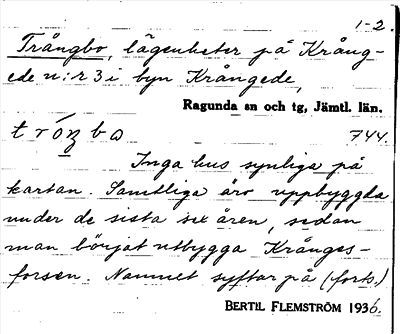 1-2.
Trångbo, lägenheter på Krång-
ede n:r 3 i byn Krångede,
Ragunda sn och tg, Jämtl. län.
744.
Inga hus synliga på
kartan. Samtliga äro uppbyggda
under de sista sex åren, sedan
man börjat utbygga Krånges-
forsen. Namnet syftar på (forts.)
BERTIL FLEMSTRÖM 1936.